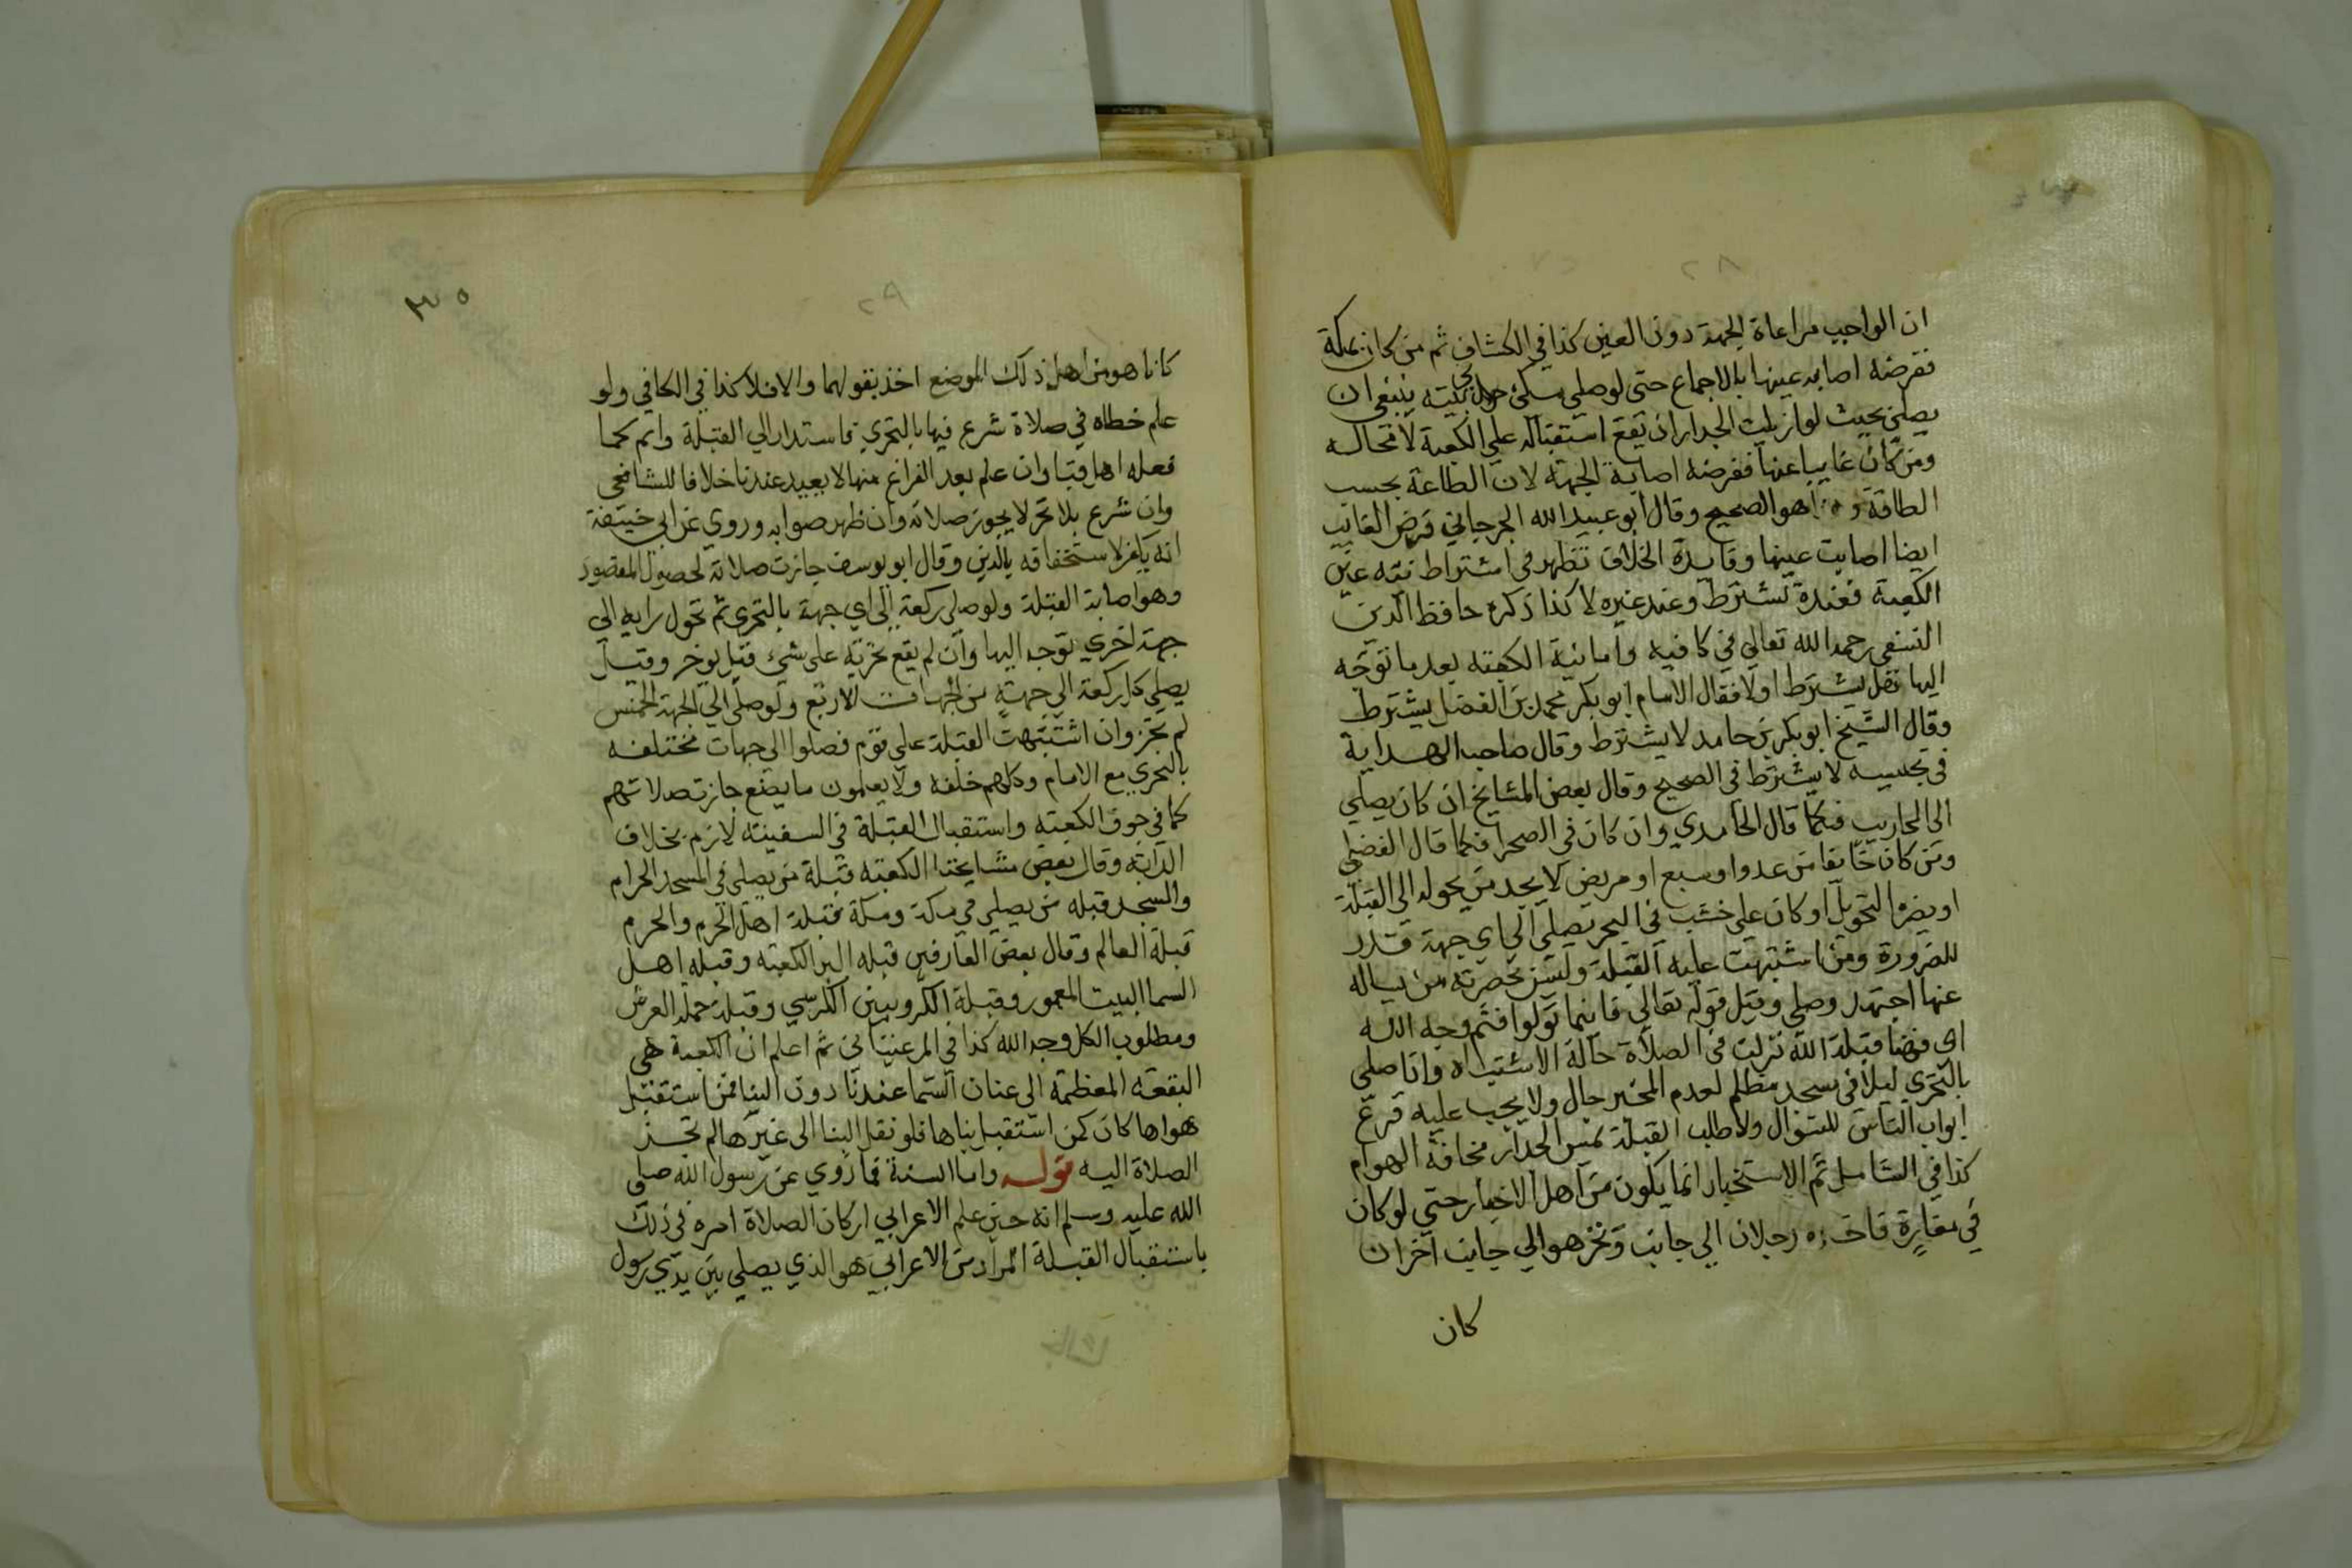 ان الواجب مراعاة الجهة دون العين كذا في الكشاف ثم من كان بمكة
ففرضه اصابه عينها بالاجماع حتى لوصلي مكي في بيته ينبغي ان
يصلي بحيث لوازيلت الجدار ان يقع استقباله علي الكعبة لامحاله
ومن كان غايبا عنها ففرضه اصابة الجهة لان الطاعة بحسب
الطاقة و هو الصحيح وقال ابو عبيد الله الجرجاني فرض الغايب
ايضا اصابت عينها وفايدة الخلاف تظهر في اشتراط نيه عين
الكعبة فعنده تشترط وعند غيره لا كذا ذكره حافظ الدين
النسفي رحمه الله تعالي في كافيه واما نية الكعبته بعد ما توجه
اليها نقل يشترط اولا فقال الامام ابو بكر محمد بن الفضل يشترط
وقال الشيخ ابو بكر بن حامد لا يشترط وقال صاحب الهداية
في تجنيسه لا يشترط في الصحيح وقال بعض المشايخ ان كان يصلي
الى المحاريب فكما قال الحامدي وان كان في الصحرا فكما قال الفضلي
ومن كان خايفا من عدو اوسبع او مريض لا يجد من يحوله الى القبلة
او يضره التحويل او كان علي خشب في البحر يصلي الي اي جهة قدر
للضرورة ومن اشتبهت عليه القبلة وليس بحضرته من يساله
عنها اجتهد وصلي وقيل قوله تعالي فاينما تولوا فثم وجه الله
اي فهنا قبلة الله نزلت في الصلاة حالة الاشتباه واذا صلي
بالتحري ليلا في مسجد مظلم لعدم المخبر جاز ولا يجب عليه قرع
ابواب الناس للسوال ولا طلب القبلة بمس الجدار مخافة الهوام
كذا في الشامل ثم الاستخبار انما يكون من اهل الاخبار حتي لو كان
في مفازة فاخبره رجلان الي جانب وتحري هو الي جانب اخر ان
كان
٢٩
٣٥
كانا هو من اهل ذلك الموضع اخذ بقولهما والا فلا كذا في الكافي ولو
علم خطاه في صلاة شرع فيها بالتحري فاستدار الي القبلة واتم كما
فعله اهل قبا وان علم بعد الفراغ منها لا يعيد عندنا خلافا للشافعي
وان شرع بلا تحر لا يجوز صلاته وان ظهر صوابه وروي عن ابي حنيفة
انه يكفر لاستخفافه بالدين وقال ابو يوسف جازت صلاته لحصول المقصود
وهو اصابة القبلة ولو صلى ركعة الي اي جهة بالتحري ثم تحول رايه الي
جهة اخري توجه اليها وان لم يقع تحريه على شيء قيل يوخر وقيل
يصلي كل ركعة الي جهة من الجهات الاربع ولو صلي الي الجهة الخمس
لم يجز وان اشتبهت القبلة علي قوم فصلوا الى جهات مختلفه
بالتحري مع الامام وكلهم خلفه ولا يعلمون ما يصنع جازت صلاتهم
كما في جوف الكعبته واستقبال القبلة في السفينة لازم بخلاف
الدابة وقال بعض مشايخنا الكعبته قبلة من يصلي في المسجد الحرام
والمسجد قبله من يصلي في مكة ومكة قبلة اهل الحرم والحرم
قبلة العالم وقال بعض العارفين قبله البشر الكعبته وقبله اهل
السما البيت المعمور وقبلة الكروبيين الكرسي وقبلة حملة العرش
ومطلوب الكل وجه الله كذا في المرغيناني ثم اعلم ان الكعبة هي
البقعه المعظمة الى عنان السما عندنا دون البنا فمن استقبل
هواها كان كمن استقبل بناها فلو نقل البنا الى غيرها لم تجز
الصلاة اليه قوله واما السنة فما روي عن رسول الله صلي
الله عليه وسلم انه حين علم الاعرابي اركان الصلاة امره في ذلك
باستقبال القبلة المراد من الاعرابي هو الذي يصلي بين يدي رسول